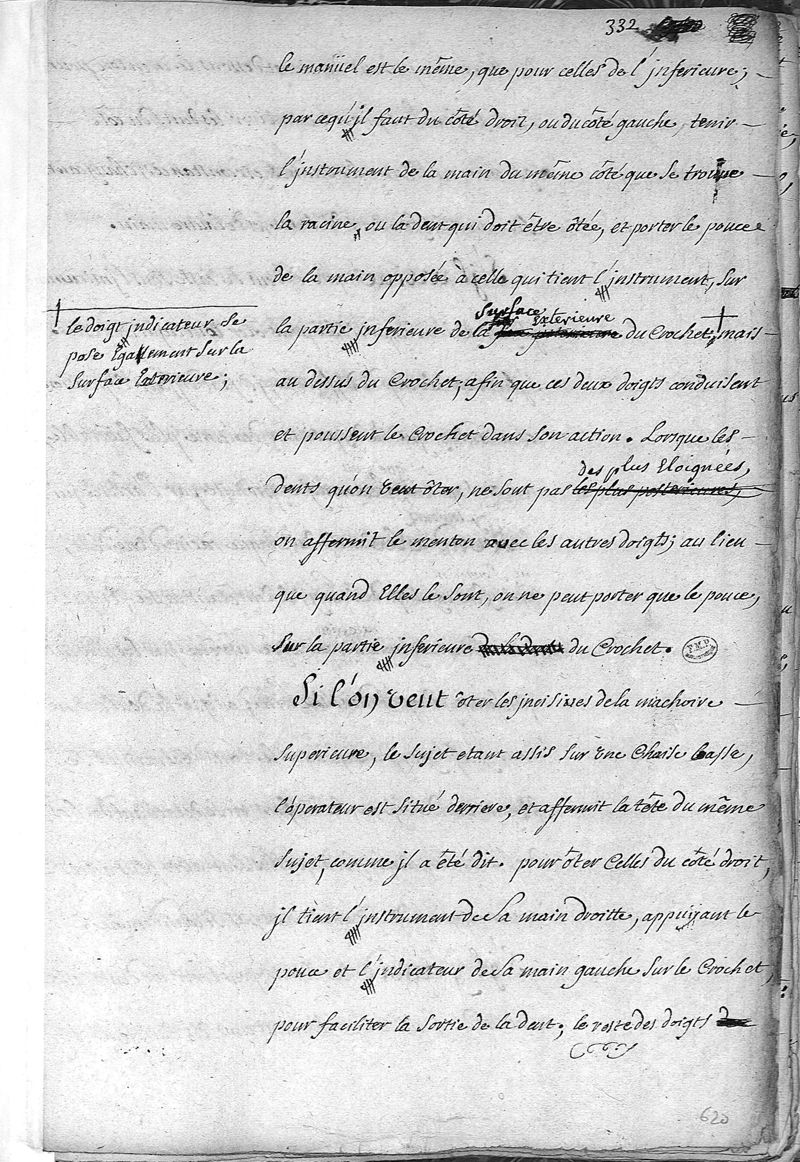 332
le manüel est le même, que pour celles de l'jnferieure;
par cequ'jl faut du côté droit, ou du côté gauche, tenir
l'jnstrument de la main du même côté que se trouve
la racine, ou la dent qui doit être ôtée, et porter le pouce
de la main opposée a celle qui tient l'jnstrument, sur
surface Exterieure
la partie jnferieure de la du Crochet; mais
† le doigt jndicateur se
pose Egallement sur la
surface Exterieure;
au dessus du Crochet, afin que ces deux doigts conduisent
et poussent le Crochet dans son action. Lorsque les
des plus Eloignées,
dents qu'on veut ôter, ne sont pas les plus posterieures,
on affermit le menton avec les autres doigts; au lieu
que quand Elles le sont, on ne peut porter que le pouce,
sur la partie jnferieure du Crochet.
Si l'on veut ôter les jncisives de la machoire
superieure, le sujet etant assis sur une Chaise basse,
l'opérateur est situé derriere, et affermit la tête du même
sujet, comme jl a été dit. pour ôter Celles du côté droit,
jl tient l'jnstrument de sa main droitte, appuyant le
pouce et l'jndicateur de sa main gauche sur le Crochet,
pour faciliter la sortie de la dent; le reste des doigts
620